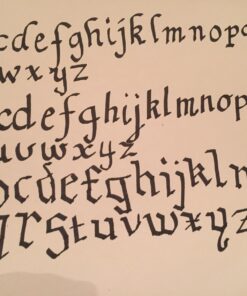 cdefghijklmnopq
wxyz
cdefghijklmnop
uvwxyz
bcdefghijklm
qrstuvwxyz